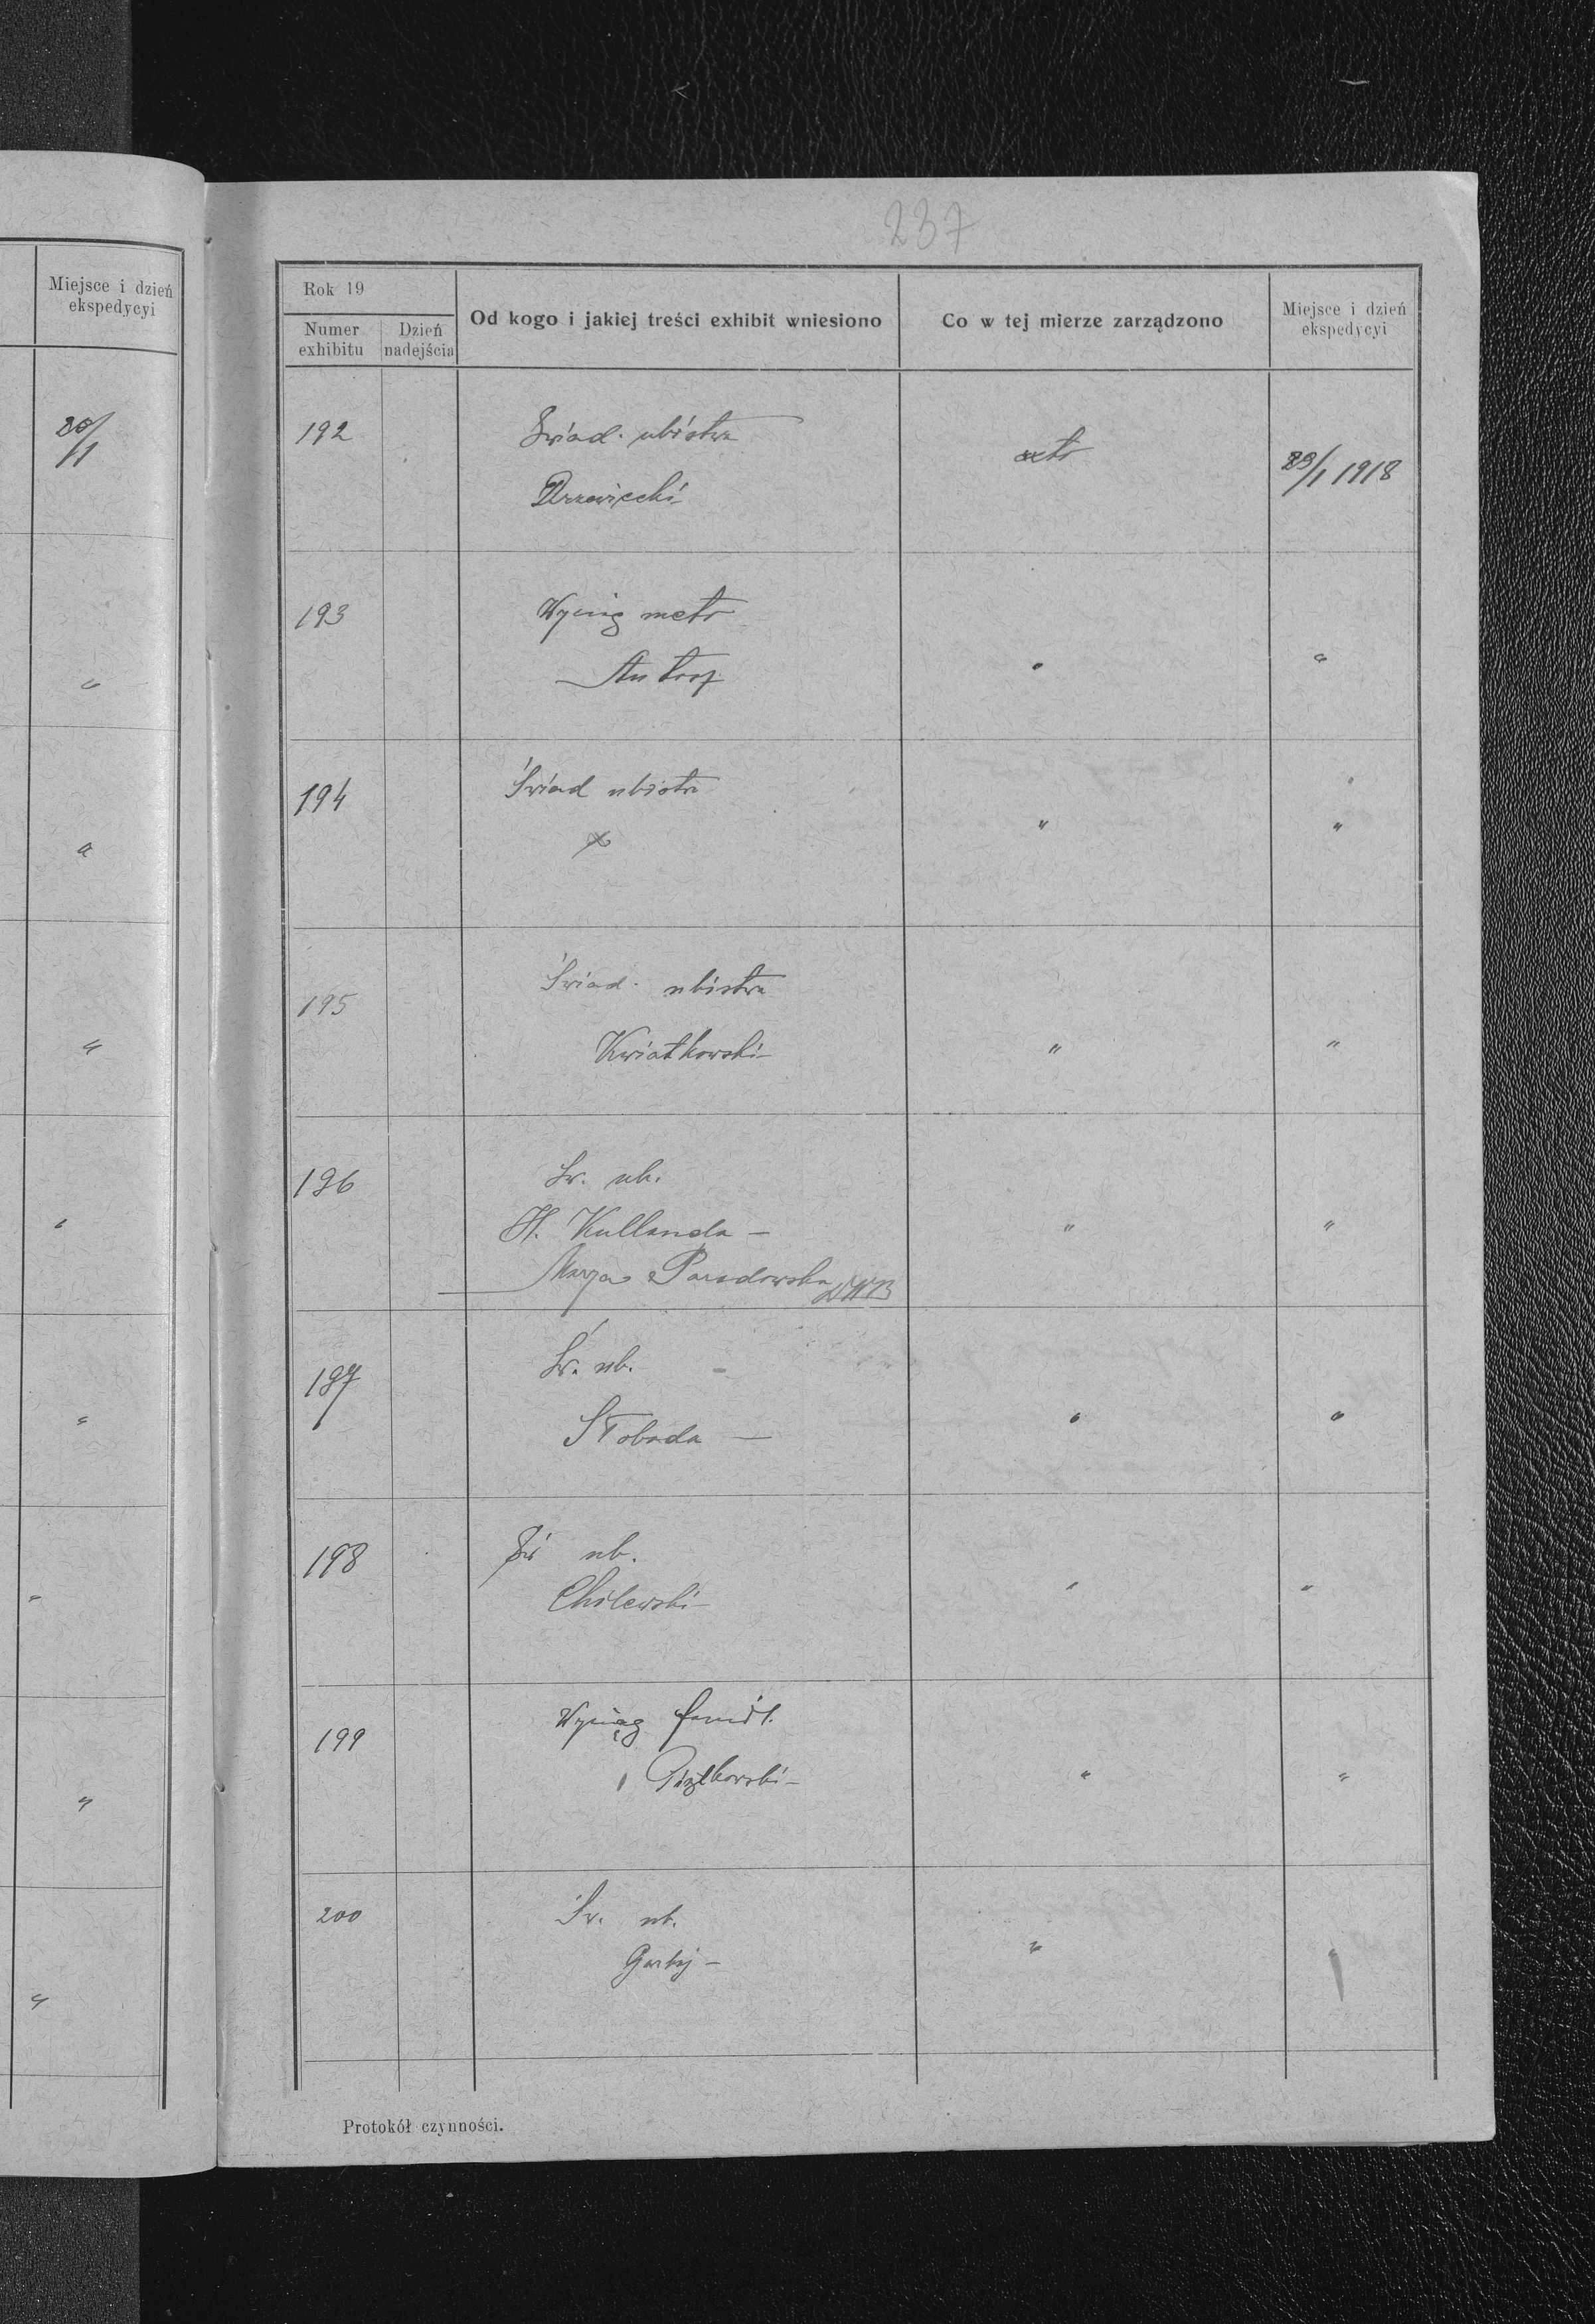 Miejsce i dzień
ekspedycyi
20/1
"
"
"
"
"
"
"
"
237
Rok 19
Numer
exhibitu
Dzień
nadejścia
Od kogo i jakiej treści exhibit wniesiono
Co w tej mierze zarządzono
Miejsce i dzień
ekspedycyi
192
Świad. ubóstwa
Drzewiecki
1918
193
Wyciąg metr
"
"
194
Świad ubóstw
"
"
195
Świad. ubóstwa
Kwiatkowski
"
"
196
Św. ub.
H. Kullanda –
Marya Paradowska
"
"
197
Św. ub.
Słoboda —
"
"
198
Św ub.
Cholewski –
"
"
199
Wyciąg famil.
Piątkowski –
"
"
200
Św. ub.
"
Protokół czynności.